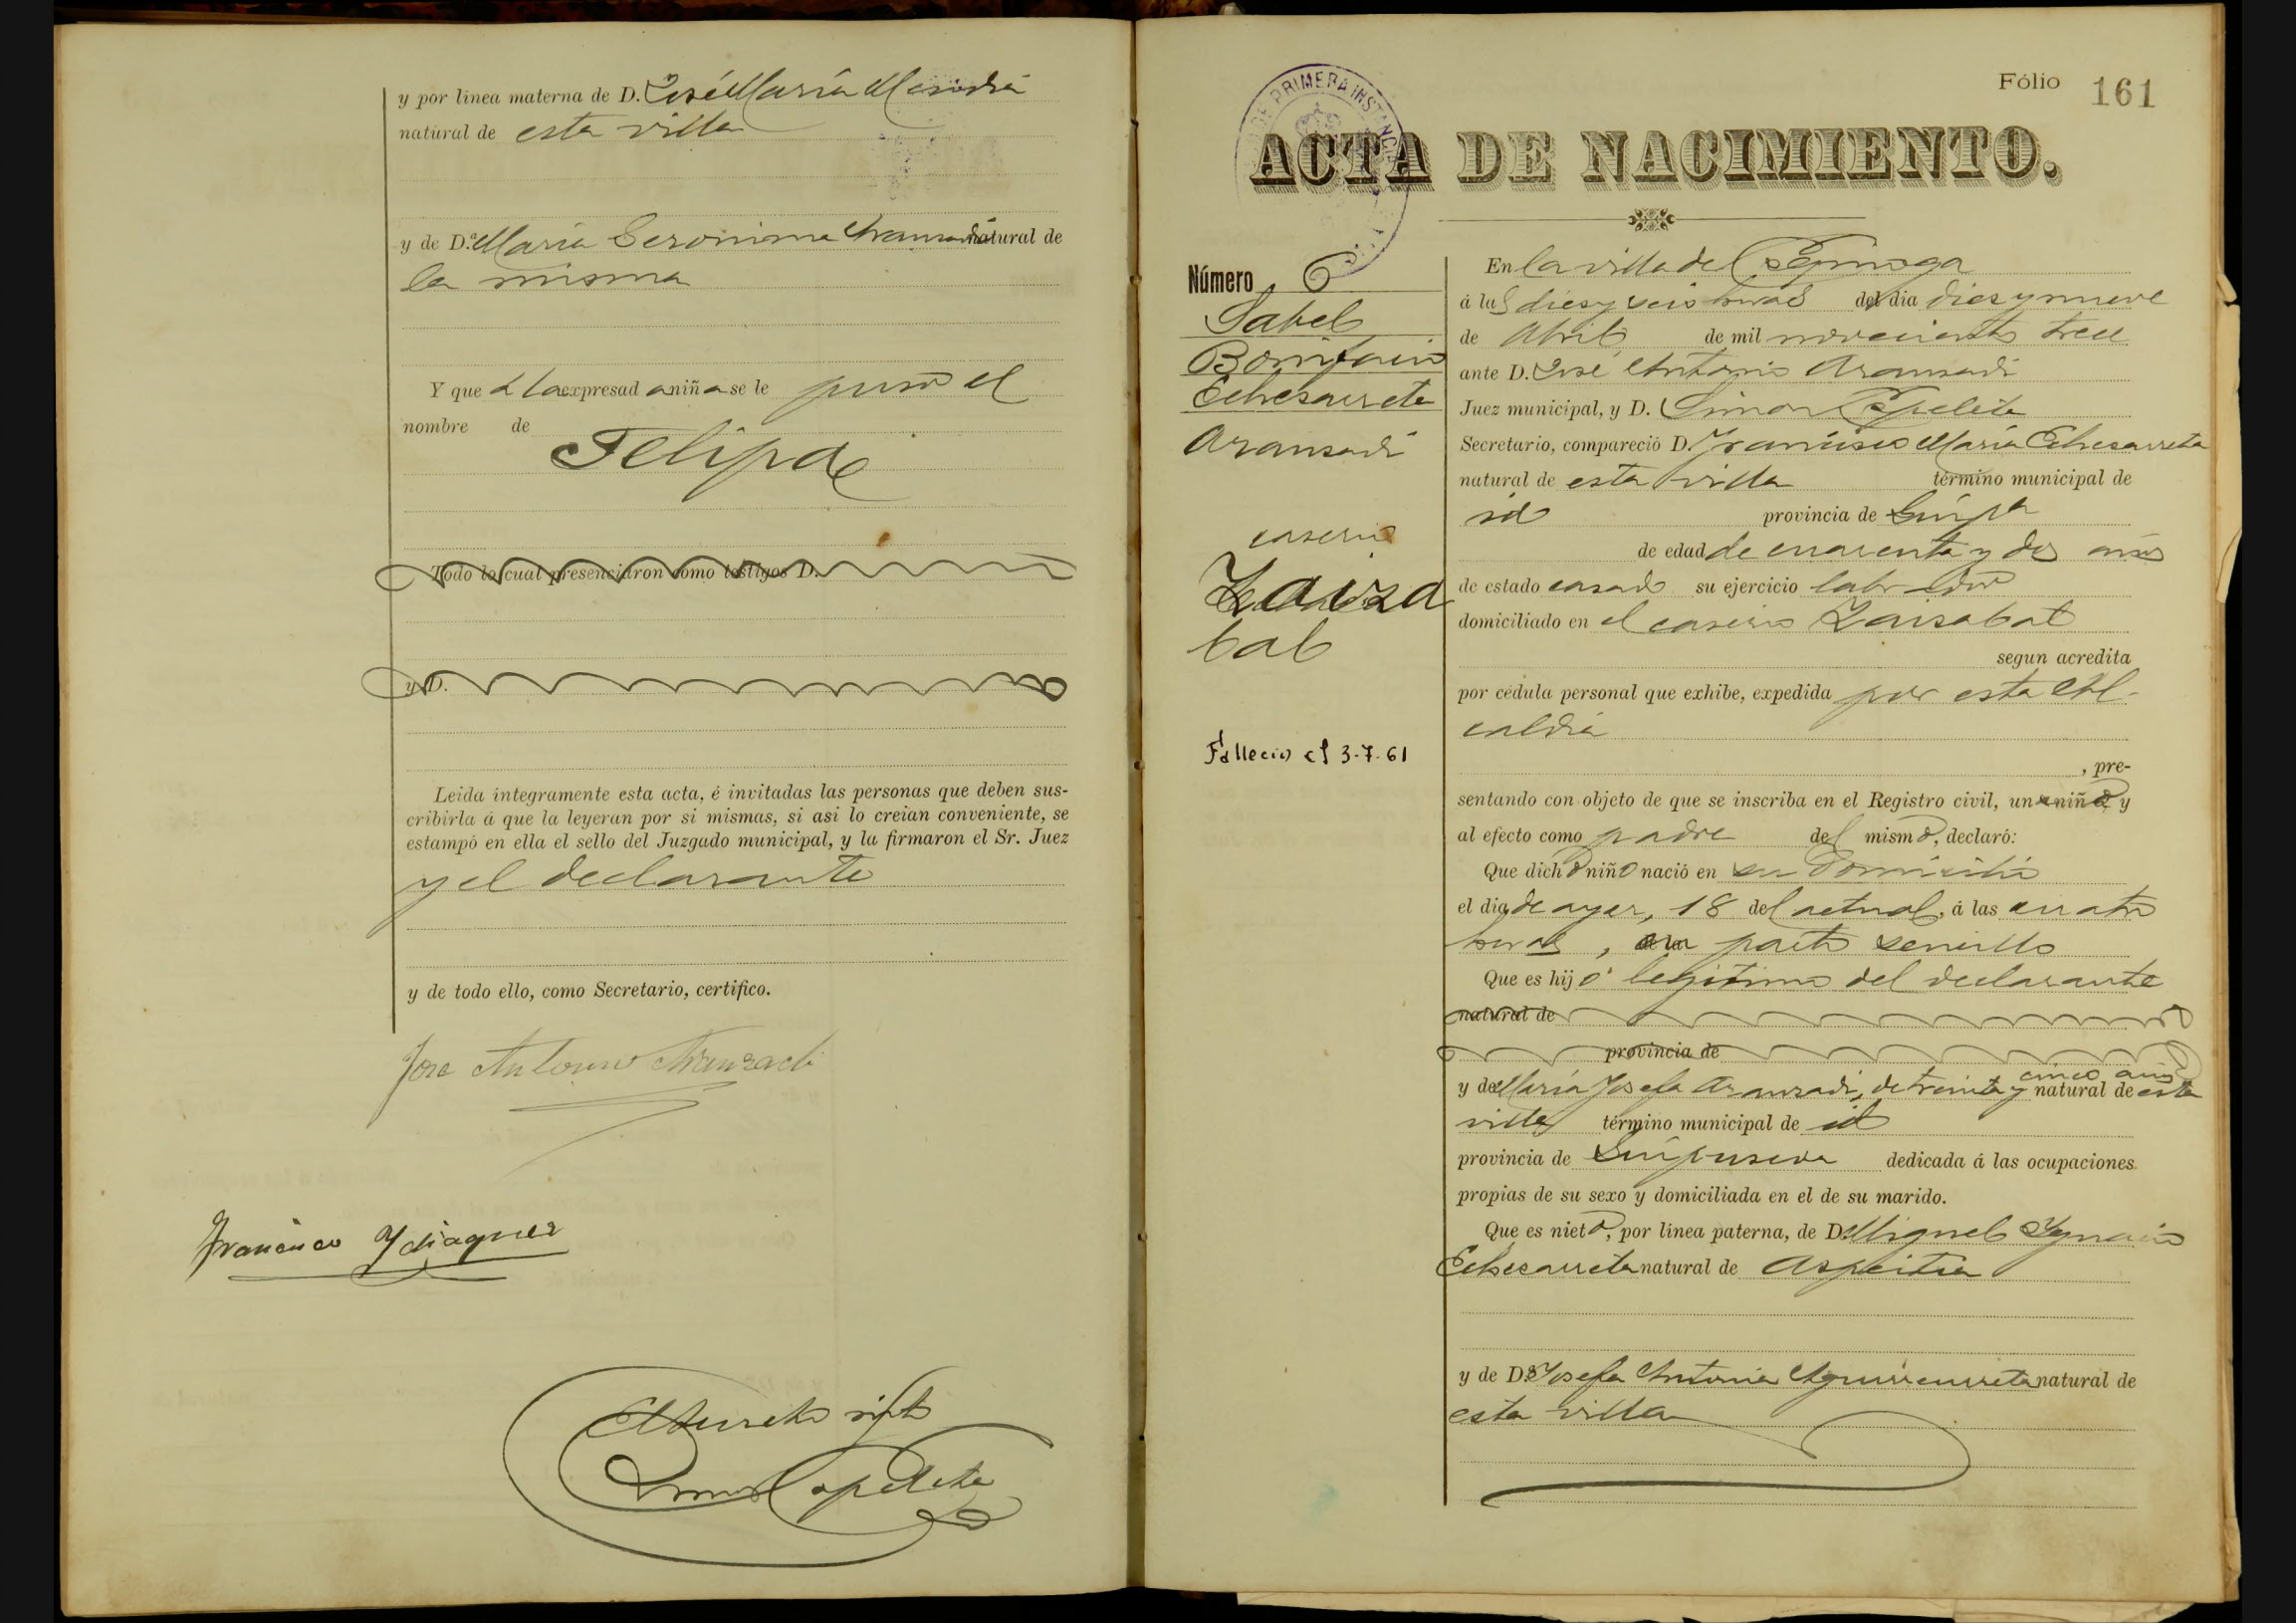 y por línea materna de D. José María
natural de esta villa
y de D.ª María natural de
la misma
Y que a la expresad a niña se le puso el
nombre de
Felipa
Todo lo cual presenciaron como testigos D.
y D.
Leida íntegramente esta acta, é invitadas las personas que deben sus-
cribirla á que la leyeran por si mismas, si asi lo creian conveniente, se
estampó en ella el sello del Juzgado municipal, y la firmaron el Sr. Juez
y el declarante
y de todo ello, como Secretario, certifico.
Jose Antonio Aranzadi
Francisco Ydiaquez
Fólio 161
DE PRIMERA INSTANCIA
ACTA DE NACIMIENTO.
Número 6
Sabel
Bonifacio
Echesarreta
Aransadi
caserio
Zaiza
bal
Fallecio el 3-7-61
En la villa de
á las dies y seis horas del dia dies y nueve
de Abril de mil novecientos trece
ante D. José Antonio Aransadi
Juez municipal, y D. Simon
Secretario, compareció D. Francisco María Echesarreta
natural de esta villa término municipal de
id provincia de Guipa
de edad de cuarenta y dos años
de estado casado su ejercicio labrador
domiciliado en el caserio Zaisabal
segun acredita
por cédula personal que exhibe, expedida por esta Al-
caldia
, pre-
sentando con objeto de que se inscriba en el Registro civil, un niño y
al efecto como padre del mismo, declaró:
Que dicho niño nació en su domicilio
el dia de ayer, 18 del actual, á las cuatro
horas, en parto sencillo
Que es hijo legitimo del declarante
natural de
provincia de
y de María Josefa Aransadi, de treinta y cinco años natural de esta
villa término municipal de id
provincia de Guipuscoa dedicada á las ocupaciones
propias de su sexo y domiciliada en el de su marido.
Que es nieto, por línea paterna, de D. Miguel Ygnacio
Echesarreta natural de Aspeitia
y de D.ª Josefa Antonia natural de
esta villa